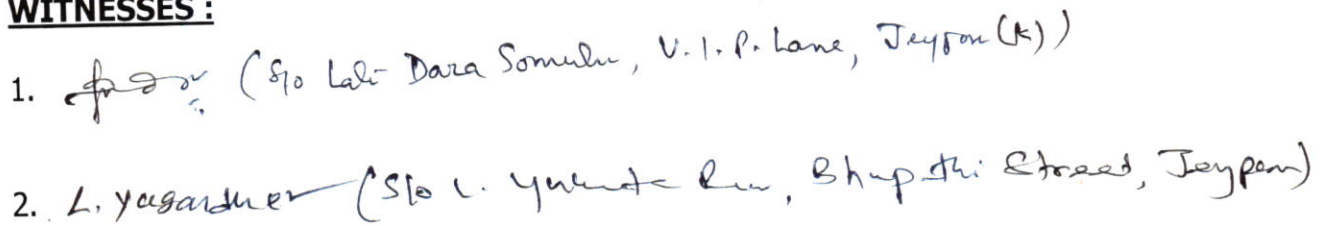 WITNESSES :
1. (S/o Late Dara Somulu, V.I.P. Lane, Jeypore (K))
2. L. Yagandher (S/o L. Rao, Bhupathi Street, Jeypore)